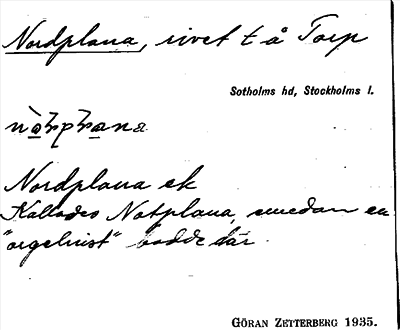 Nordplana, rivet t å Torp
Sotholms hd, Stockholms l.
Nordplana ek
Kallades Notplana, emedan en
"orgelnist" bodde där.
GÖRAN ZETTERBERG 1935.